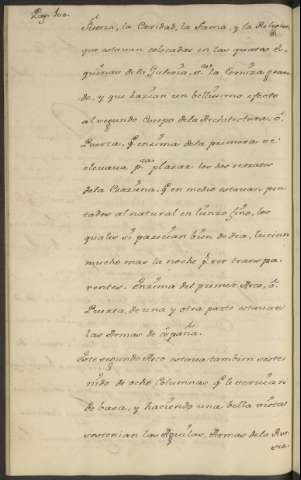 Pag. 100.
fuerza, la Caridad, la Fama, y la Religion,
que estavan colocadas en las quatro es-
quinas de la Galeria, la Corniza gran-
de, y que hazian un bellissimo efecto
al segundo Cuerpo de la Architectura, ô,
Puerta, q̃ encima de la primera se
elevava pª plazar los dos retratos
de la Czarina, q̃ en medio estavan pin-
tados al natural en lienzo fino, los
quales si parecian bien de dia, lucian
mucho mas la noche p.r ser transpa-
rentes. Encima del primer Arco, ô,
Puerta, de una y otra parte estavan
las Armas de España.
Este segundo Arco estava tambien soste-
nido de ocho Columnas q̃ le servian
de basa, y haciendo una bella vista
sostenian las Aguilas, Armas de la Rus-
sia.